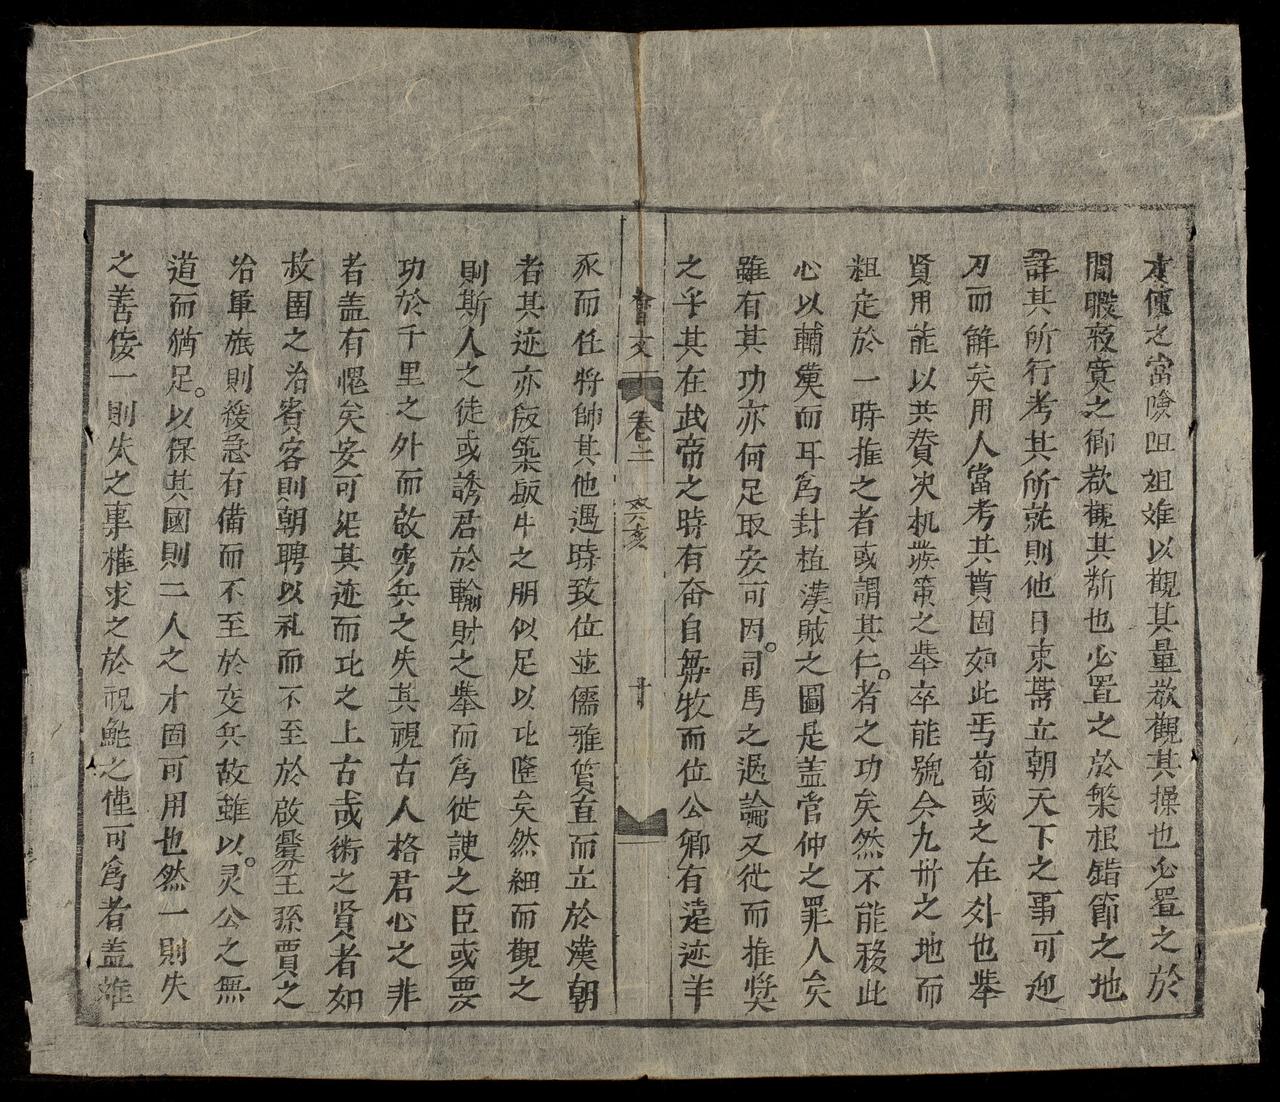 才傳之當險阻姐难以觀其量欲觀其操也必置之於
間暇寂寞之鄉欲觀其断也必置之於槃根錯節之地
詳其所行考其所就則他日束帶立朝天下之事可迎
刀而解矣用人當考其實固如此焉荀彧之在外也舉
賢用能以共賛决机發策之舉卒能號令九卅之地而
粗定於一時推之者或謂其仁者之功矣然不能移此
心以輔漢而耳為封植漢賊之圖是盖管仲之罪人矣
雖有其功亦何足取安可因司馬之過論又從而推奬
之乎其在武帝之時有奋自芻牧而位公卿有遠迹羊
會文 卷二 文六亥 十
豕而任将帥其他遇時致位並儒雅質直而立於漢朝
者其迹亦版築飯牛之朋似足以比隆矣然細而觀之
則斯人之徒或誘君於輸財之舉而為從諛之臣或要
功於千里之外而啟穷兵之失其視古人格君心之非
者盖有愧矣安可把其迹而比之上古哉術之賢者如
叔圉之治賓客則朝聘以礼而不至於啟釁王孫賈之
治軍旅則緩急有備而不至於交兵故雖以灵公之無
道而猶足以保其國則二人之才固可用也然一則失
之善佞一則失之事權求之於祝鮀之僅可為者盖雖